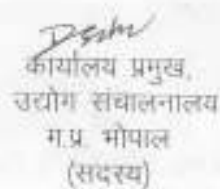 कार्यालय प्रमुख,
उद्योग संचालनालय
म.प्र. भोपाल
(सदस्य)